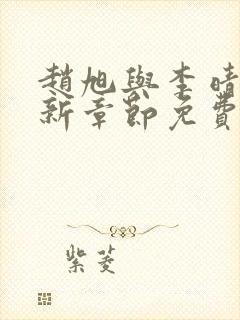 趙旭與李晴
新章節免費
紫菱